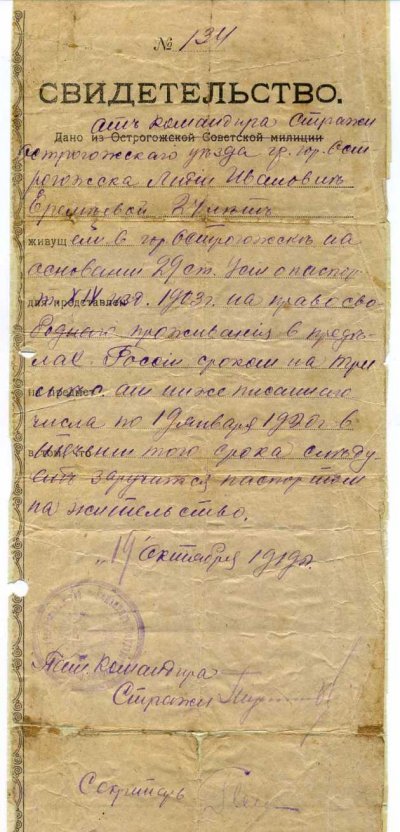 № 134
СВИДЕТЕЛЬСТВО.
отъ командира Стражи
Дано из Острогожской Советской милиции
Острогожскаго уѣзда гр. гор. Ост
рогожска Лидіи Ивановнѣ
Еремѣевой 27 лѣтъ
живущей в гор Острогожскѣ на
основаніи 29 ст. Уст о паспор
для представлен XIV изд. 1903 г. на право сво
бодного проживанія в предѣ
лах Россіи сроком на три
на предмет от ниже писаннаго
числа по 19 января 1920 г в
теченіи того срока слѣду
ет заручится паспортом
на жительство.
"19" Октября 1919 г.
Пом. Командира
Стражи
Секретарь